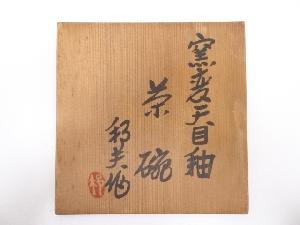 窯変天目釉
茶碗
邦夫作